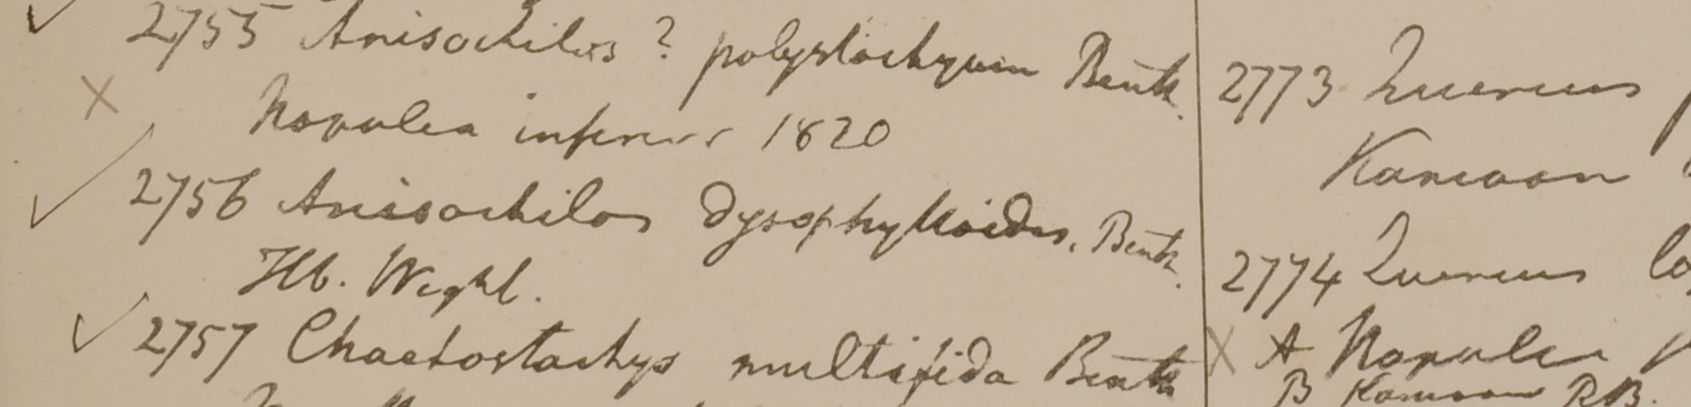 2755 Anisochilus ? polystachyum Benth.
Napalea inferior 1820
2756 Anisochilos dysophylloides. Benth.
Hb. Wight.
2757 Chaetostachys multifida Benth
2773 Quercus
Kamaon
2774 Quercus
A Napalea
B Kamaon R.B.